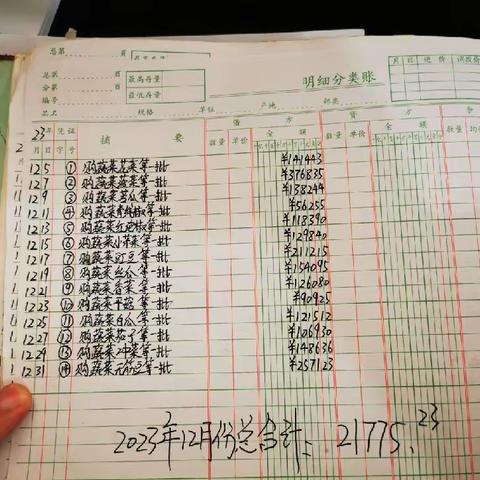 总第 頁
总第 頁 最高存量
分第 頁 最低存量
明细分类账
月 日 进价
编号
品名 规格 单位 产地 部类
借方 贷方
23年 凭证 摘要 数量 单价 金额 数量 单价 金额 数量
月 日 字 号
12 5 ① 购蔬菜芫菜等一批 ¥141443
12 7 ② 购蔬菜菠菜等一批 ¥376835
12 9 ③ 购蔬菜苦瓜等一批 ¥138244
12 11 ④ 购蔬菜青线椒等一批 ¥56255
12 13 ⑤ 购蔬菜红泡椒等一批 ¥118390
12 15 ⑥ 购蔬菜小芥菜等一批 ¥129840
12 17 ⑦ 购蔬菜豇豆等一批 ¥211215
12 19 ⑧ 购蔬菜丝瓜等一批 ¥154095
12 21 ⑨ 购蔬菜香菜等一批 ¥126080
12 23 ⑩ 购蔬菜平菇等一批 ¥90925
12 25 ⑪ 购蔬菜白瓜等一批 ¥121512
12 27 ⑫ 购蔬菜茄子等一批 ¥106930
12 29 ⑬ 购蔬菜冲菜等一批 ¥148636
12 31 ⑭ 购蔬菜元白豆等一批 ¥257123
2023年12月份总合计: 21775.23